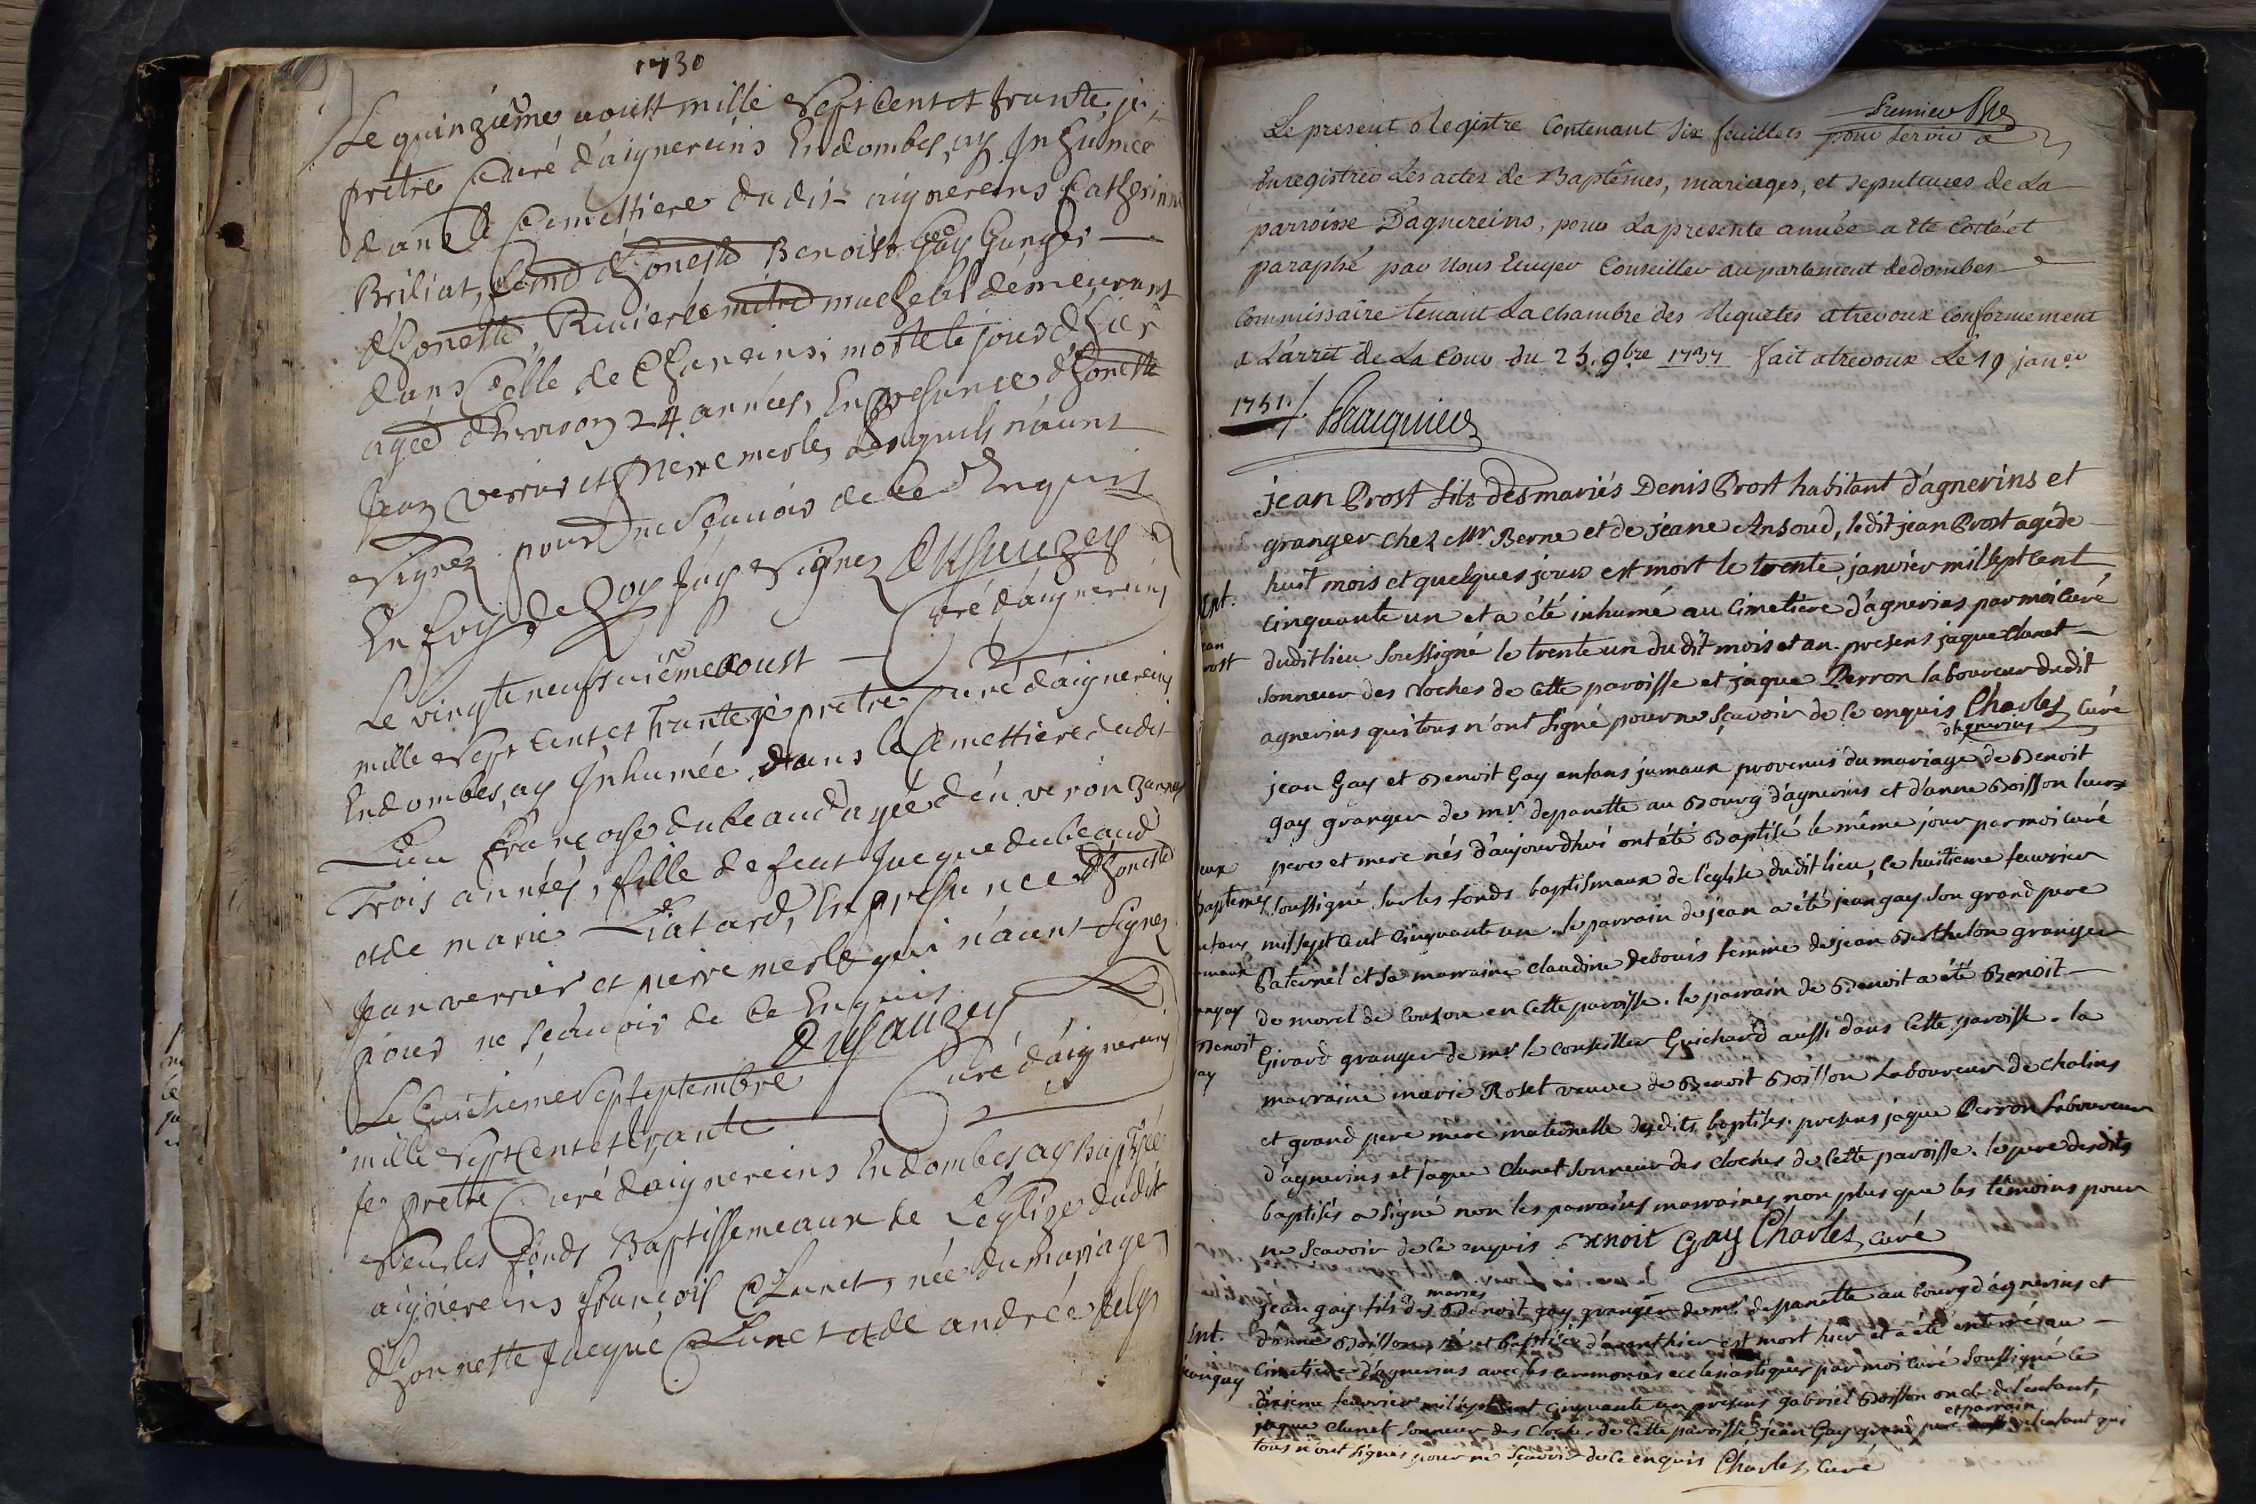 1730
Le quinziême aoust mille Sept Cent et trante je
prêtre Curé d'aignereins En dombes, ay Inhumée
dans le Cemettiere du dit aignereins Catherinne
Briliat, honeste Benoist Gay
d'honeste Riviere demeurant
dans Celle de Chaneins, morte le jour d'hier
agée d'Environ 24 années, En presance d'honeste
Jean verrier et Pierre merle, Lesquels n'aunt
Signez pour ne Scauoir de Ce Enquis
En foy de quoy J'ay Signez Dusauzey
Curé d'aignereins
Le vingt neufviême aoust
mille Sept Cent et trante je prêtre Curé d'aignereins
En dombes, ay Inhumée dans le Cemettiere dudit
Lieu françoise dubeaud agée d'environ
Trois années, fille de feut Jacque dubeaud
et de marie Liatard, En presance d'honeste
Jean verrier et pierre merle qui n'aunt Signez
pour ne Scauoir de Ce Enquis
Dusauzey
Curé d'aignereins
Le huitieme Septembre
mille Sept Cent et trante
je prêtre Curé d'aignereins En dombes ay Baptisée
Seur les fonds Baptissemeaux de L'eglize dudit
aignereins François Clunet, née du mariage
d'honnette Jacque Clunet et de andrée

Premier
Le present Registre Contenant Six feuillets pour Servir a
Enregistrer Les actes de Baptêmes, mariages, et sepultures de La
parroisse D'agnereins, pour La presente année a ete Cotté et
paraphé par Nous Ecuyer Conseiller au parlement de dombes
Commissaire tenant La chambre des Requetes a trevoux Conformement
a L'arret de La Cour du 25. 9bre 1737 fait a trevoux Le 19 janer
1751.
jean Prost fils des mariés Denis Prost habitant d'agnerins et
granger chez Mr. Berne et de jeane Ansoud, ledit jean Prost agé de
huit mois et quelques jours est mort le trente janvier mil sept cent
Ent.
cinquante un et a été inhumé au Cimetiere d'agnerins par moi Curé
jean
dudit lieu Soussigné le trente un du dit mois et an. presens jaque Clunet
Prost
Sonneur des cloches de cette paroisse et jaque Perron laboureur dudit
agnerins qui tous n'ont Signé pour ne Sçavoir de Ce enquis Charles Curé
d'agnerins
jean Gay et Benoit Gay enfans jumaux provenus du mariage de Benoit
gay granger de mr. depanette au Bourg d'agnerins et d'anne Boisson leurs
pere et mere nés d'aujourd'hui ont été Baptisé le même jour par moi curé
baptemes
soussigné Sur les fonds baptismaux de l'eglise dudit lieu, ce huitieme feuvrier
mil sept cent cinquante un. le parrain de jean a été jean gay Son grand pere
Paternel et sa marraine Claudine Debouis femme de jean Berthelon granger
de morel de Couson en cette paroisse. le parrain de Benoit a été Benoit
Benoit
Girard granger de mr le conseiller Guichard aussi dans cette paroisse. la
gay
marraine marie Roset veuve de Benoit Boisson Laboureur de chalins
et grand pere mere maternelle desdits baptisés. presens jaque Perron Laboureur
d'agnerins et jaque Clunet Sonneur des cloches de Cette paroisse. le pere desdits
baptisés a Signé non les parrains marraines non plus que les témoins pour
ne Scavoir de Ce enquis. Benoit Gay Charles, curé
mariés
jean gay fils des Benoit gay granger de mr. depanette au bourg d'agnerins et
Ent.
d'anne Boisson, né et baptisé d'avanthier est mort hier et a été enterré au
jean gay
Cimetiere d'agnerins avec les ceremonies ecclesiastiques par moi Curé Soussigné ce
dixieme feuvrier mil sept cent cinquante un presens gabriel Boisson oncle de l'enfant,
et parrain
jaque Clunet Sonneur des Cloches de Cette paroisse, jean Gay grand pere de l'enfant qui
tous n'ont Signés pour ne Sçavoir de Ce enquis Charles, Curé